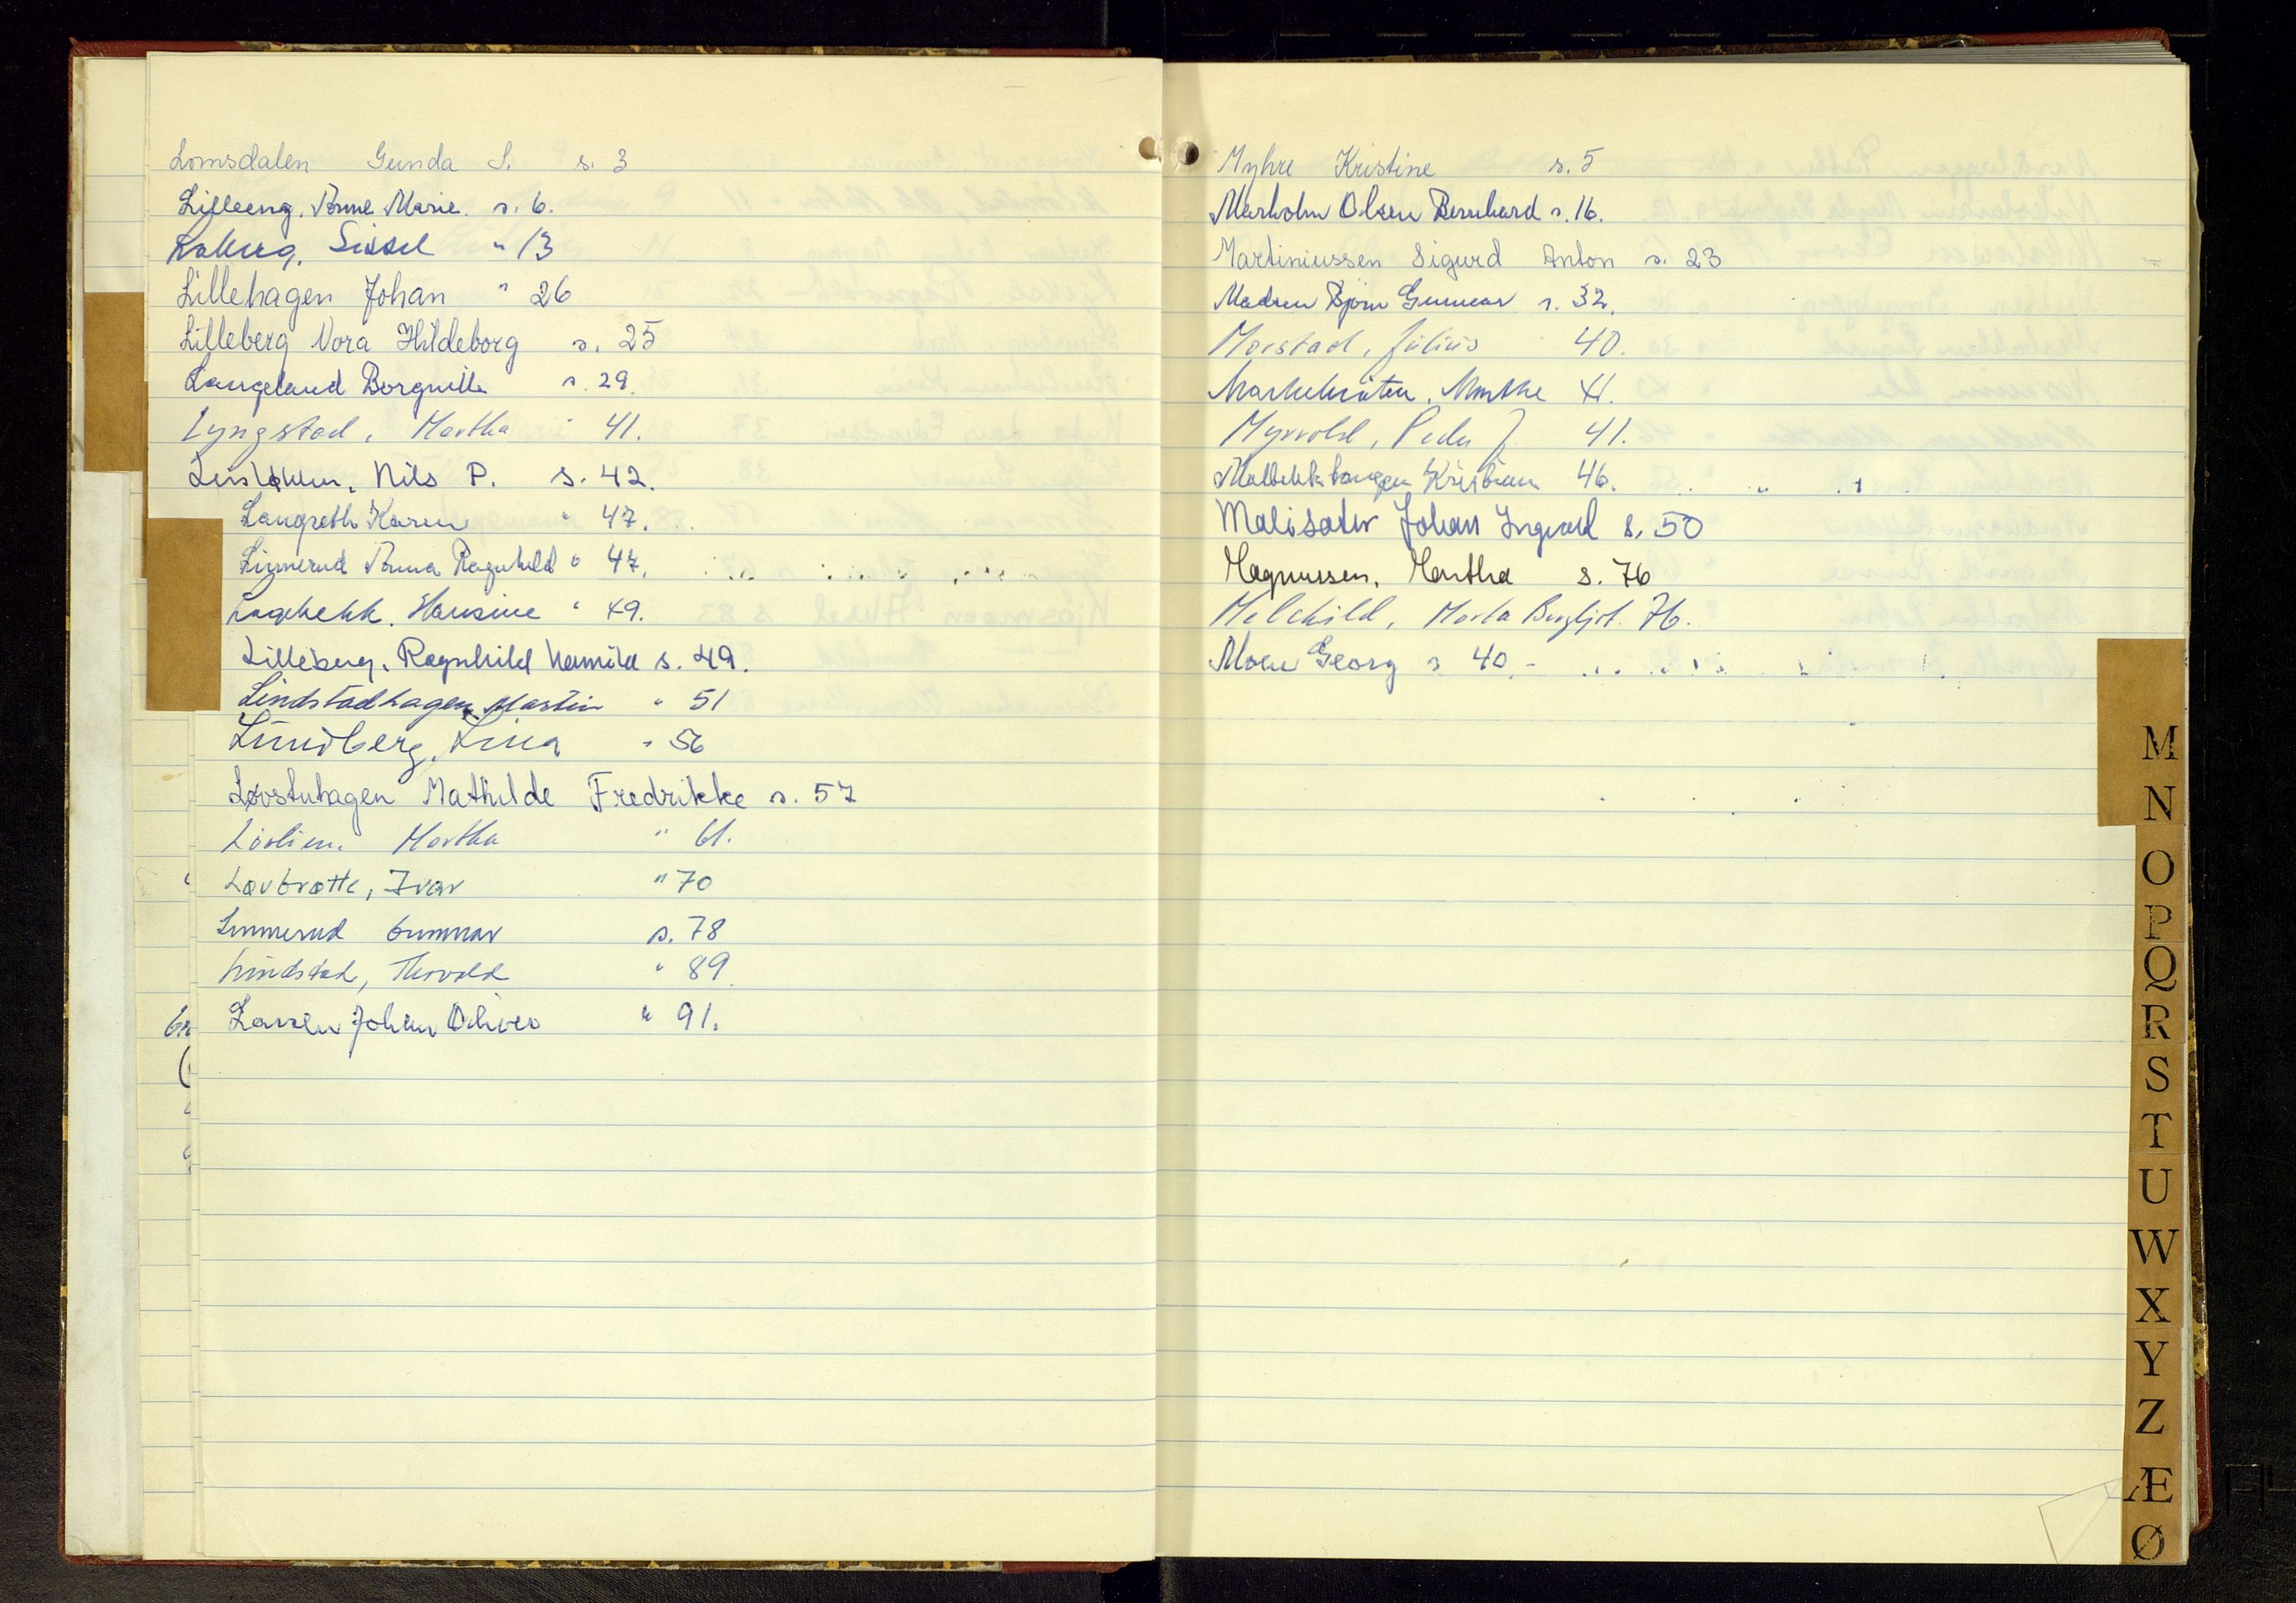 Lomsdalen Gunda S. s. 3
Lilleeng, Anne Marie. s. 6.
Sissel " 13
Lillehagen Johan " 26
Lilleberg Nora Hildeborg s. 25
Langeland Borghild s. 29.
Lyngstad, Martha " 41.
Nils P. s. 42.
Langseth Karen " 47.
Linnerud Anna Ragnhild " 47.
Hansine " 49.
Lilleberg, Ragnhild s. 49.
Lindstadhagen Martin " 51
Lundberg, Lina " 56
Løvstuhagen Mathilde Fredrikke s. 57
Lövlien. Martha " 61.
Løvbrøtte, Ivar " 70
Linnerud Gunnar s. 78
Lindstad, Thorvald " 89.
Larsen Johan Oliver " 91.
Myhre Kristine s. 5
Marholm Olsen Bernhard s. 16.
Martiniussen Sigurd Anton s. 23
Madsen Bjørn Gunnar s. 32.
Morstad, Julius 40.
Marthe 41.
Myrvold, Peder J. 41.
Kristian 46.
Malisæter Johan Ingvald s. 50
Magnussen, Martha s. 76
Melchild, Marta Bergljot. 76.
Moen Georg s 40.-
M
N
O
P
Q
R
S
T
U
W
X
Y
Z
Æ
Ø